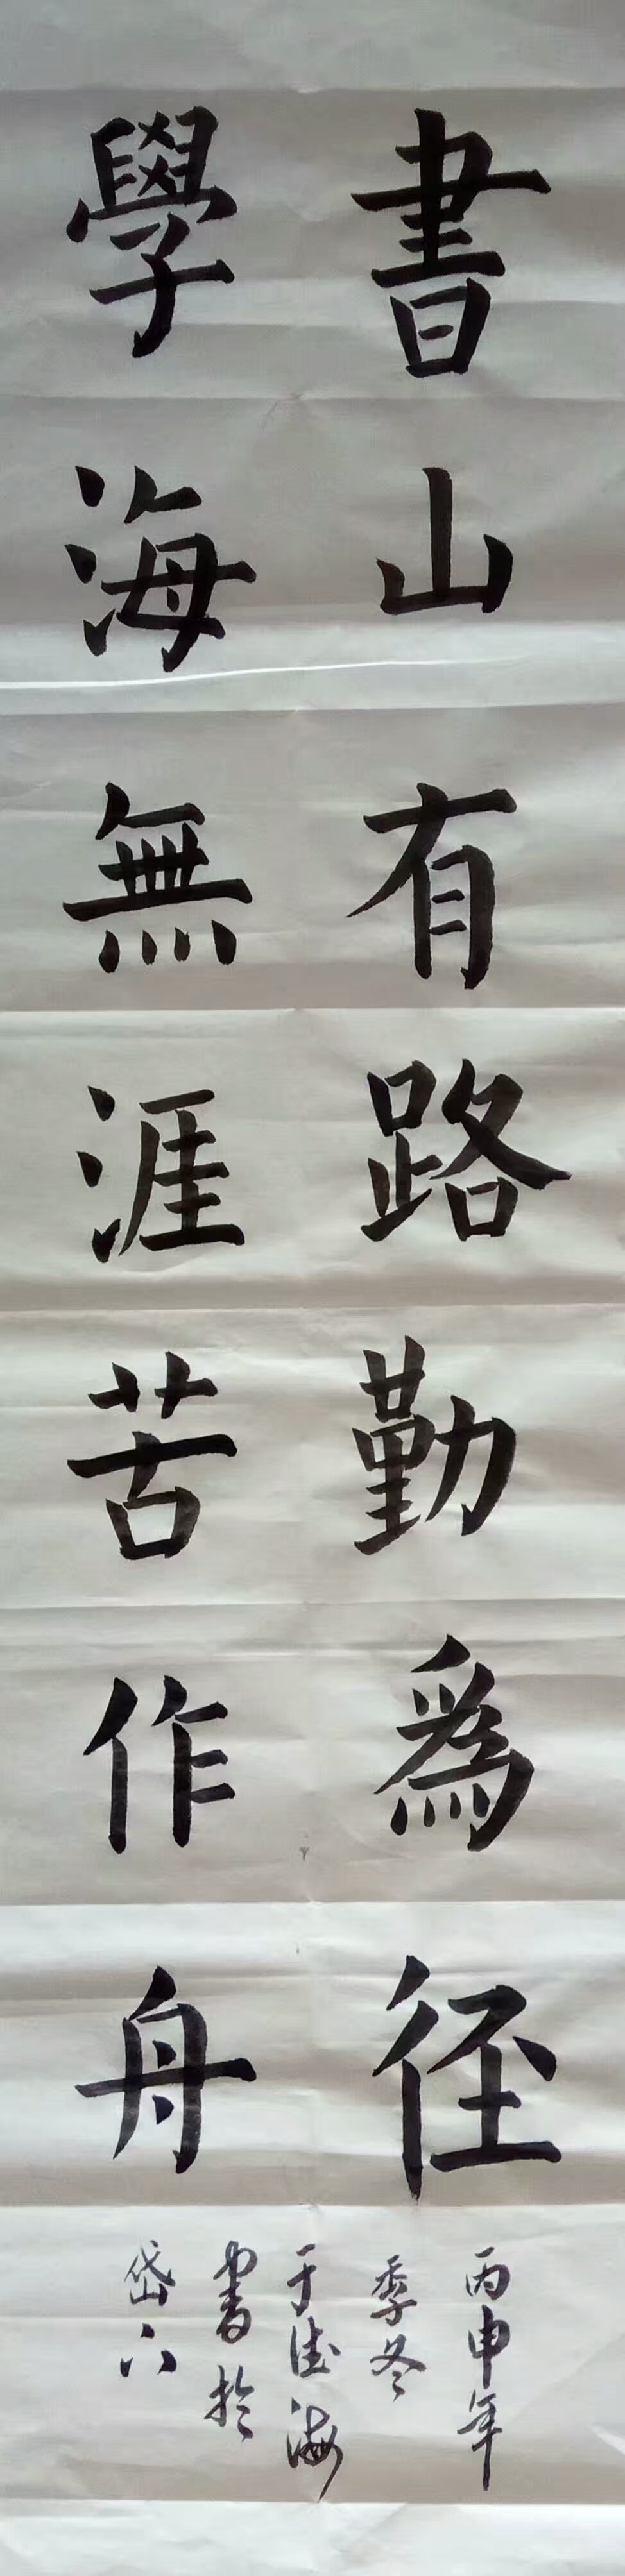 書山有路勤為径
學海無涯苦作舟
丙申年
季冬
于德海
書於
岱下